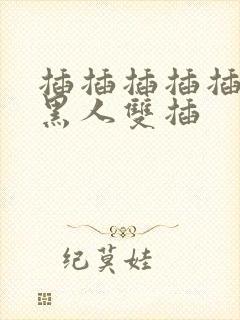 插插插插插
黑人雙插
纪莫娃